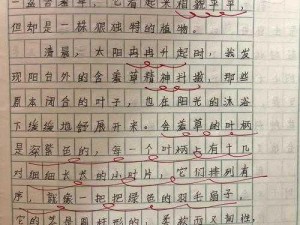 一盆含羞草，它看起来相貌平平，
但却是一株很独特的植物。
清晨，太阳冉冉升起时，我发
现阳台外的含羞草精神抖擞，那些
原本闭合的叶子，也在阳光的沐浴
下缓缓地舒展开来。含羞草的叶柄
是深紫色的，每一个叶柄上有十几
对细细长长的小叶片，它们排列有
序，就像一把把绿色的羽毛扇子。
它的茎是圆柱形的，柔软而又韧性，